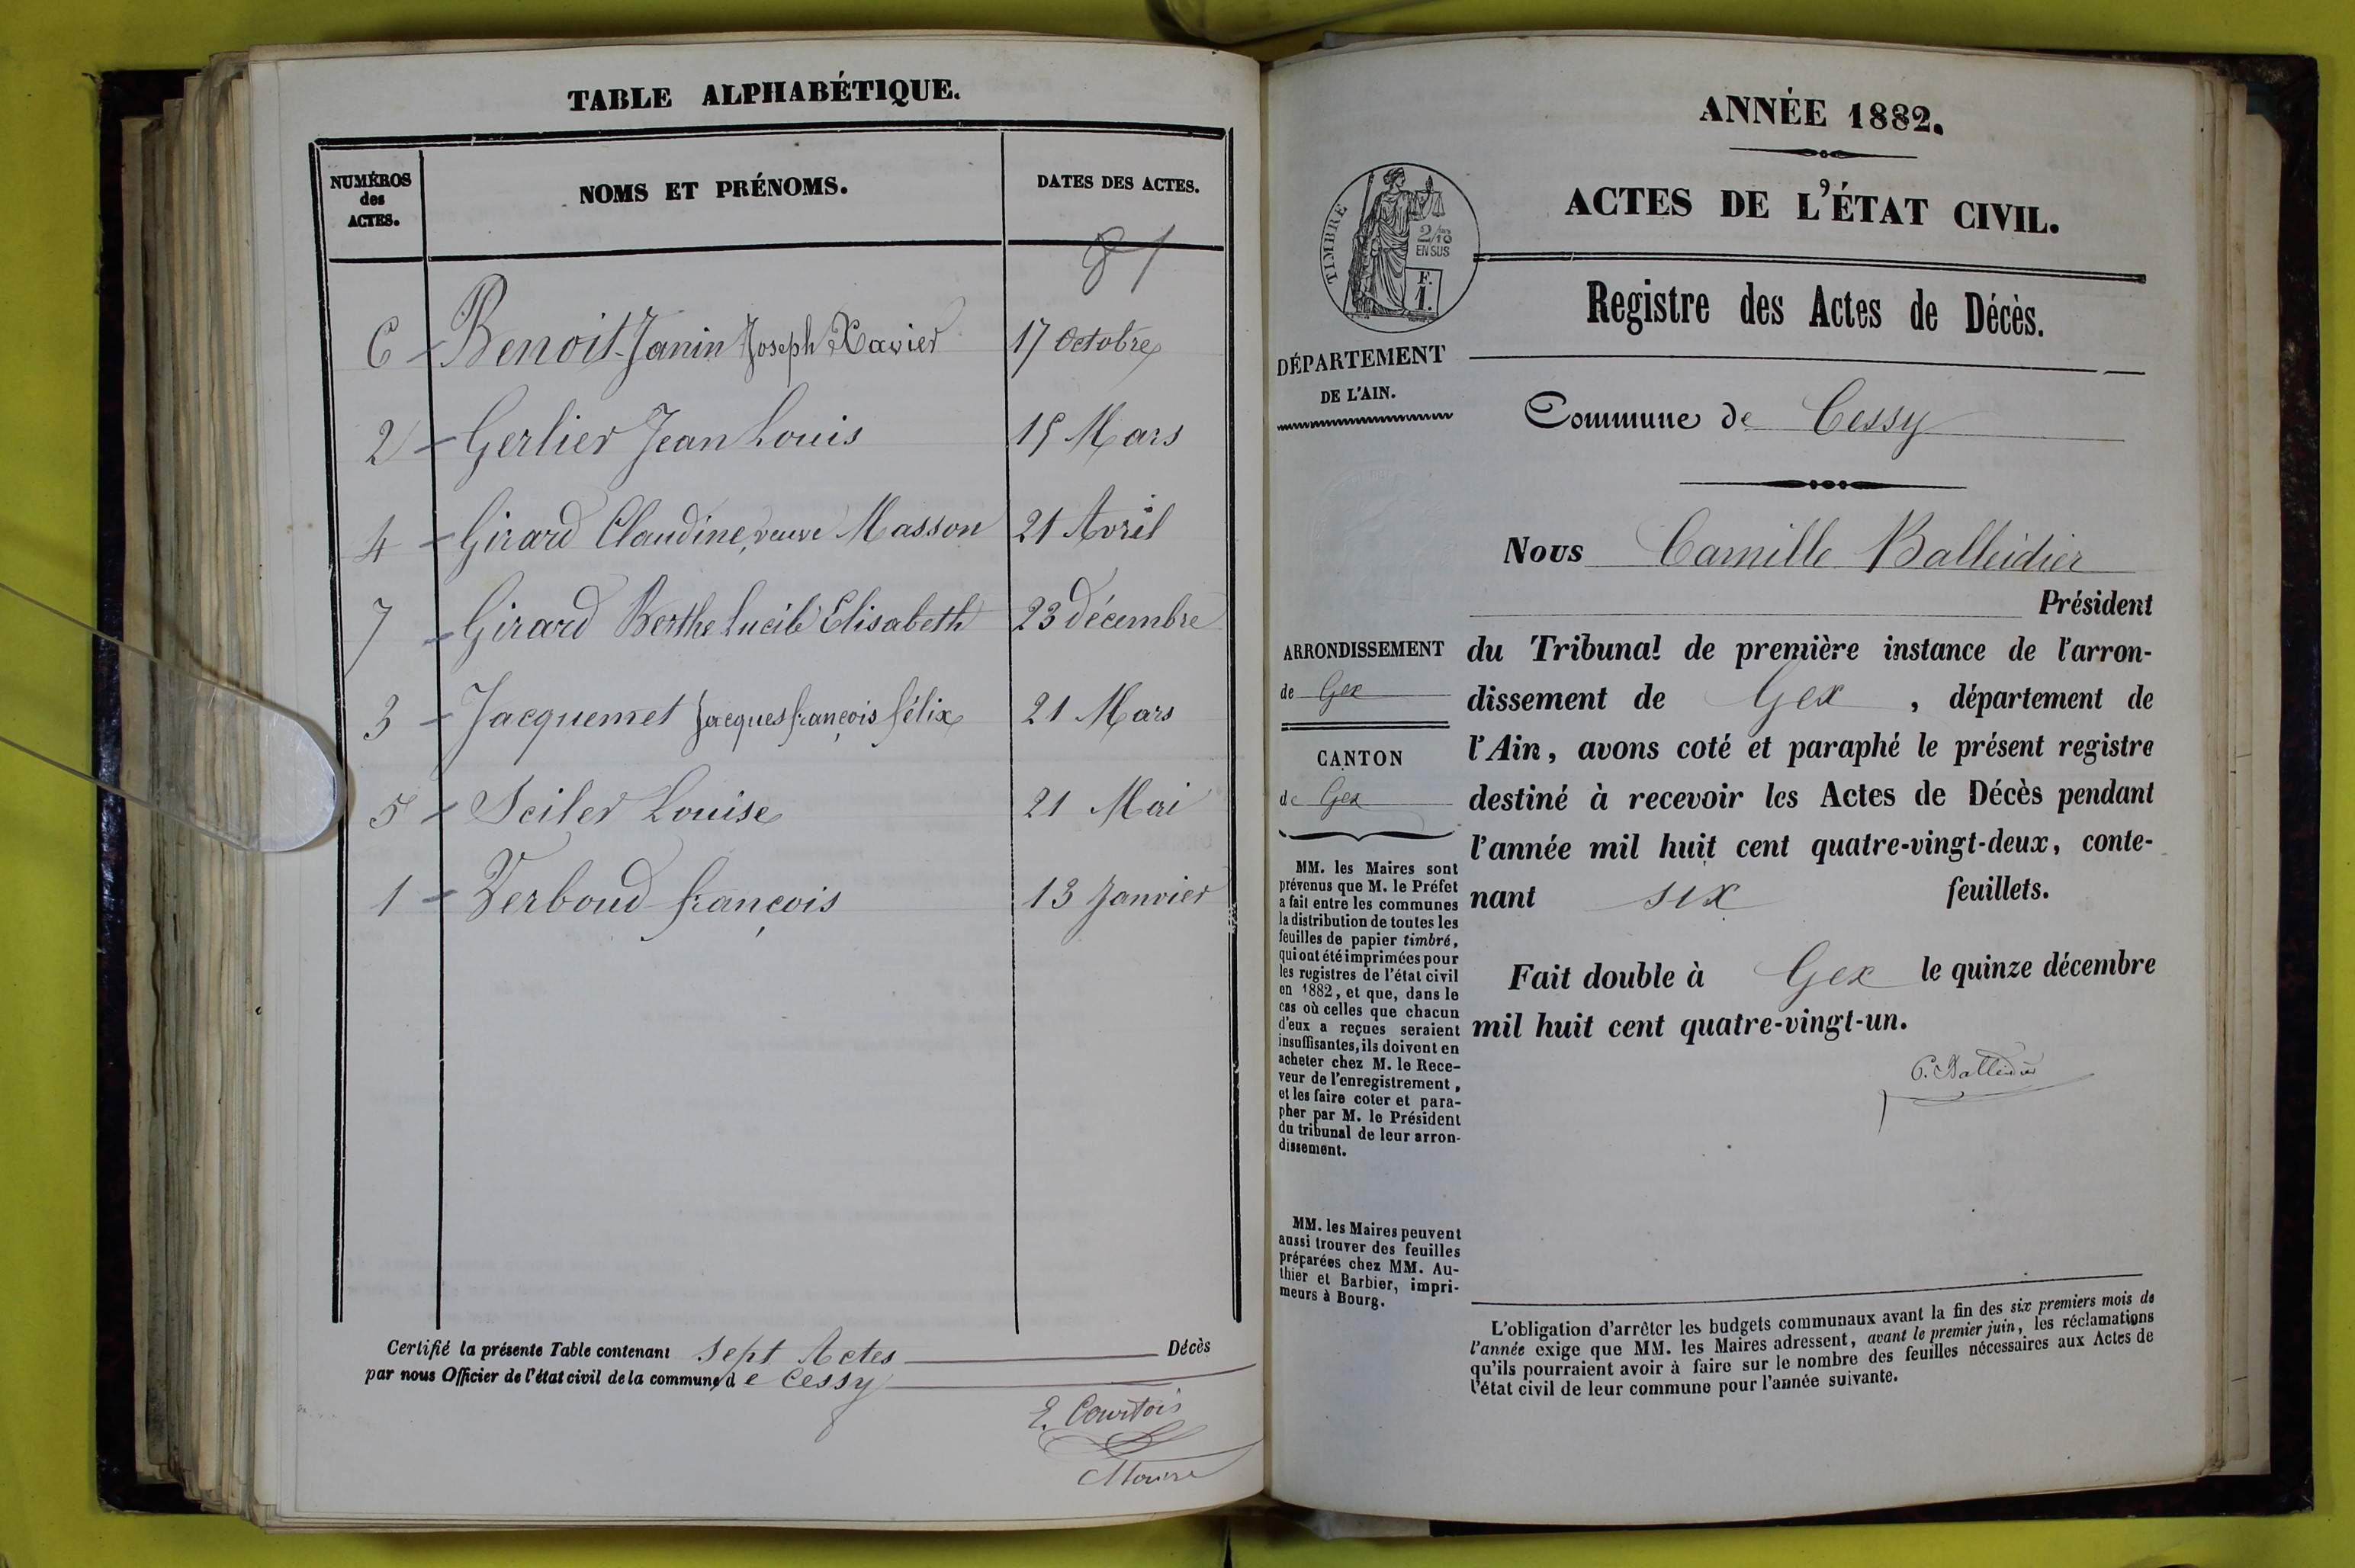 TABLE ALPHABÉTIQUE.
NUMÉROS
des
ACTES.
NOMS ET PRÉNOMS.
DATES DES ACTES.
81
6 - Benoit-Janin Joseph Xavier 17 Octobre
2 - Gerlier Jean Louis 15 Mars
4 - Girard Claudine, veuve Masson 21 Avril
7 - Girard Berthe Lucile Elisabeth 23 décembre
3 - Jacquemet Jacques françois félix 21 Mars
5 - Seiler Louise 21 Mai
1 - Verboud françois 13 Janvier
Certifié la présente Table contenant sept Actes Décès
par nous Officier de l'état civil de la commune de Cessy
E. Courtois
Maire
ANNÉE 1882.
ACTES DE L'ÉTAT CIVIL.
TIMBRE
2/10
EN SUS
F.
1.
Registre des Actes de Décès.
DÉPARTEMENT
DE L'AIN.
Commune de Cessy
Nous Camille Balleidier
Président
ARRONDISSEMENT
de Gex
CANTON
de Gex
du Tribunal de première instance de l'arron-
dissement de Gex, département de
l'Ain, avons coté et paraphé le présent registre
destiné à recevoir les Actes de Décès pendant
l'année mil huit cent quatre-vingt-deux, conte-
nant six feuillets.
Fait double à Gex le quinze décembre
mil huit cent quatre-vingt-un.
C. Balleidier
MM. les Maires sont
prévenus que M. le Préfet
a fait entre les communes
la distribution de toutes les
feuilles de papier timbré,
qui ont été imprimées pour
les registres de l'état civil
en 1882, et que, dans le
cas où celles que chacun
d'eux a reçues seraient
insuffisantes, ils doivent en
acheter chez M. le Rece-
veur de l'enregistrement,
et les faire coter et para-
pher par M. le Président
du tribunal de leur arron-
dissement.
MM. les Maires peuvent
aussi trouver des feuilles
préparées chez MM. Au-
thier et Barbier, impri-
meurs à Bourg.
L'obligation d'arrêter les budgets communaux avant la fin des six premiers mois de
l'année exige que MM. les Maires adressent, avant le premier juin, les réclamations
qu'ils pourraient avoir à faire sur le nombre des feuilles nécessaires aux Actes de
l'état civil de leur commune pour l'année suivante.